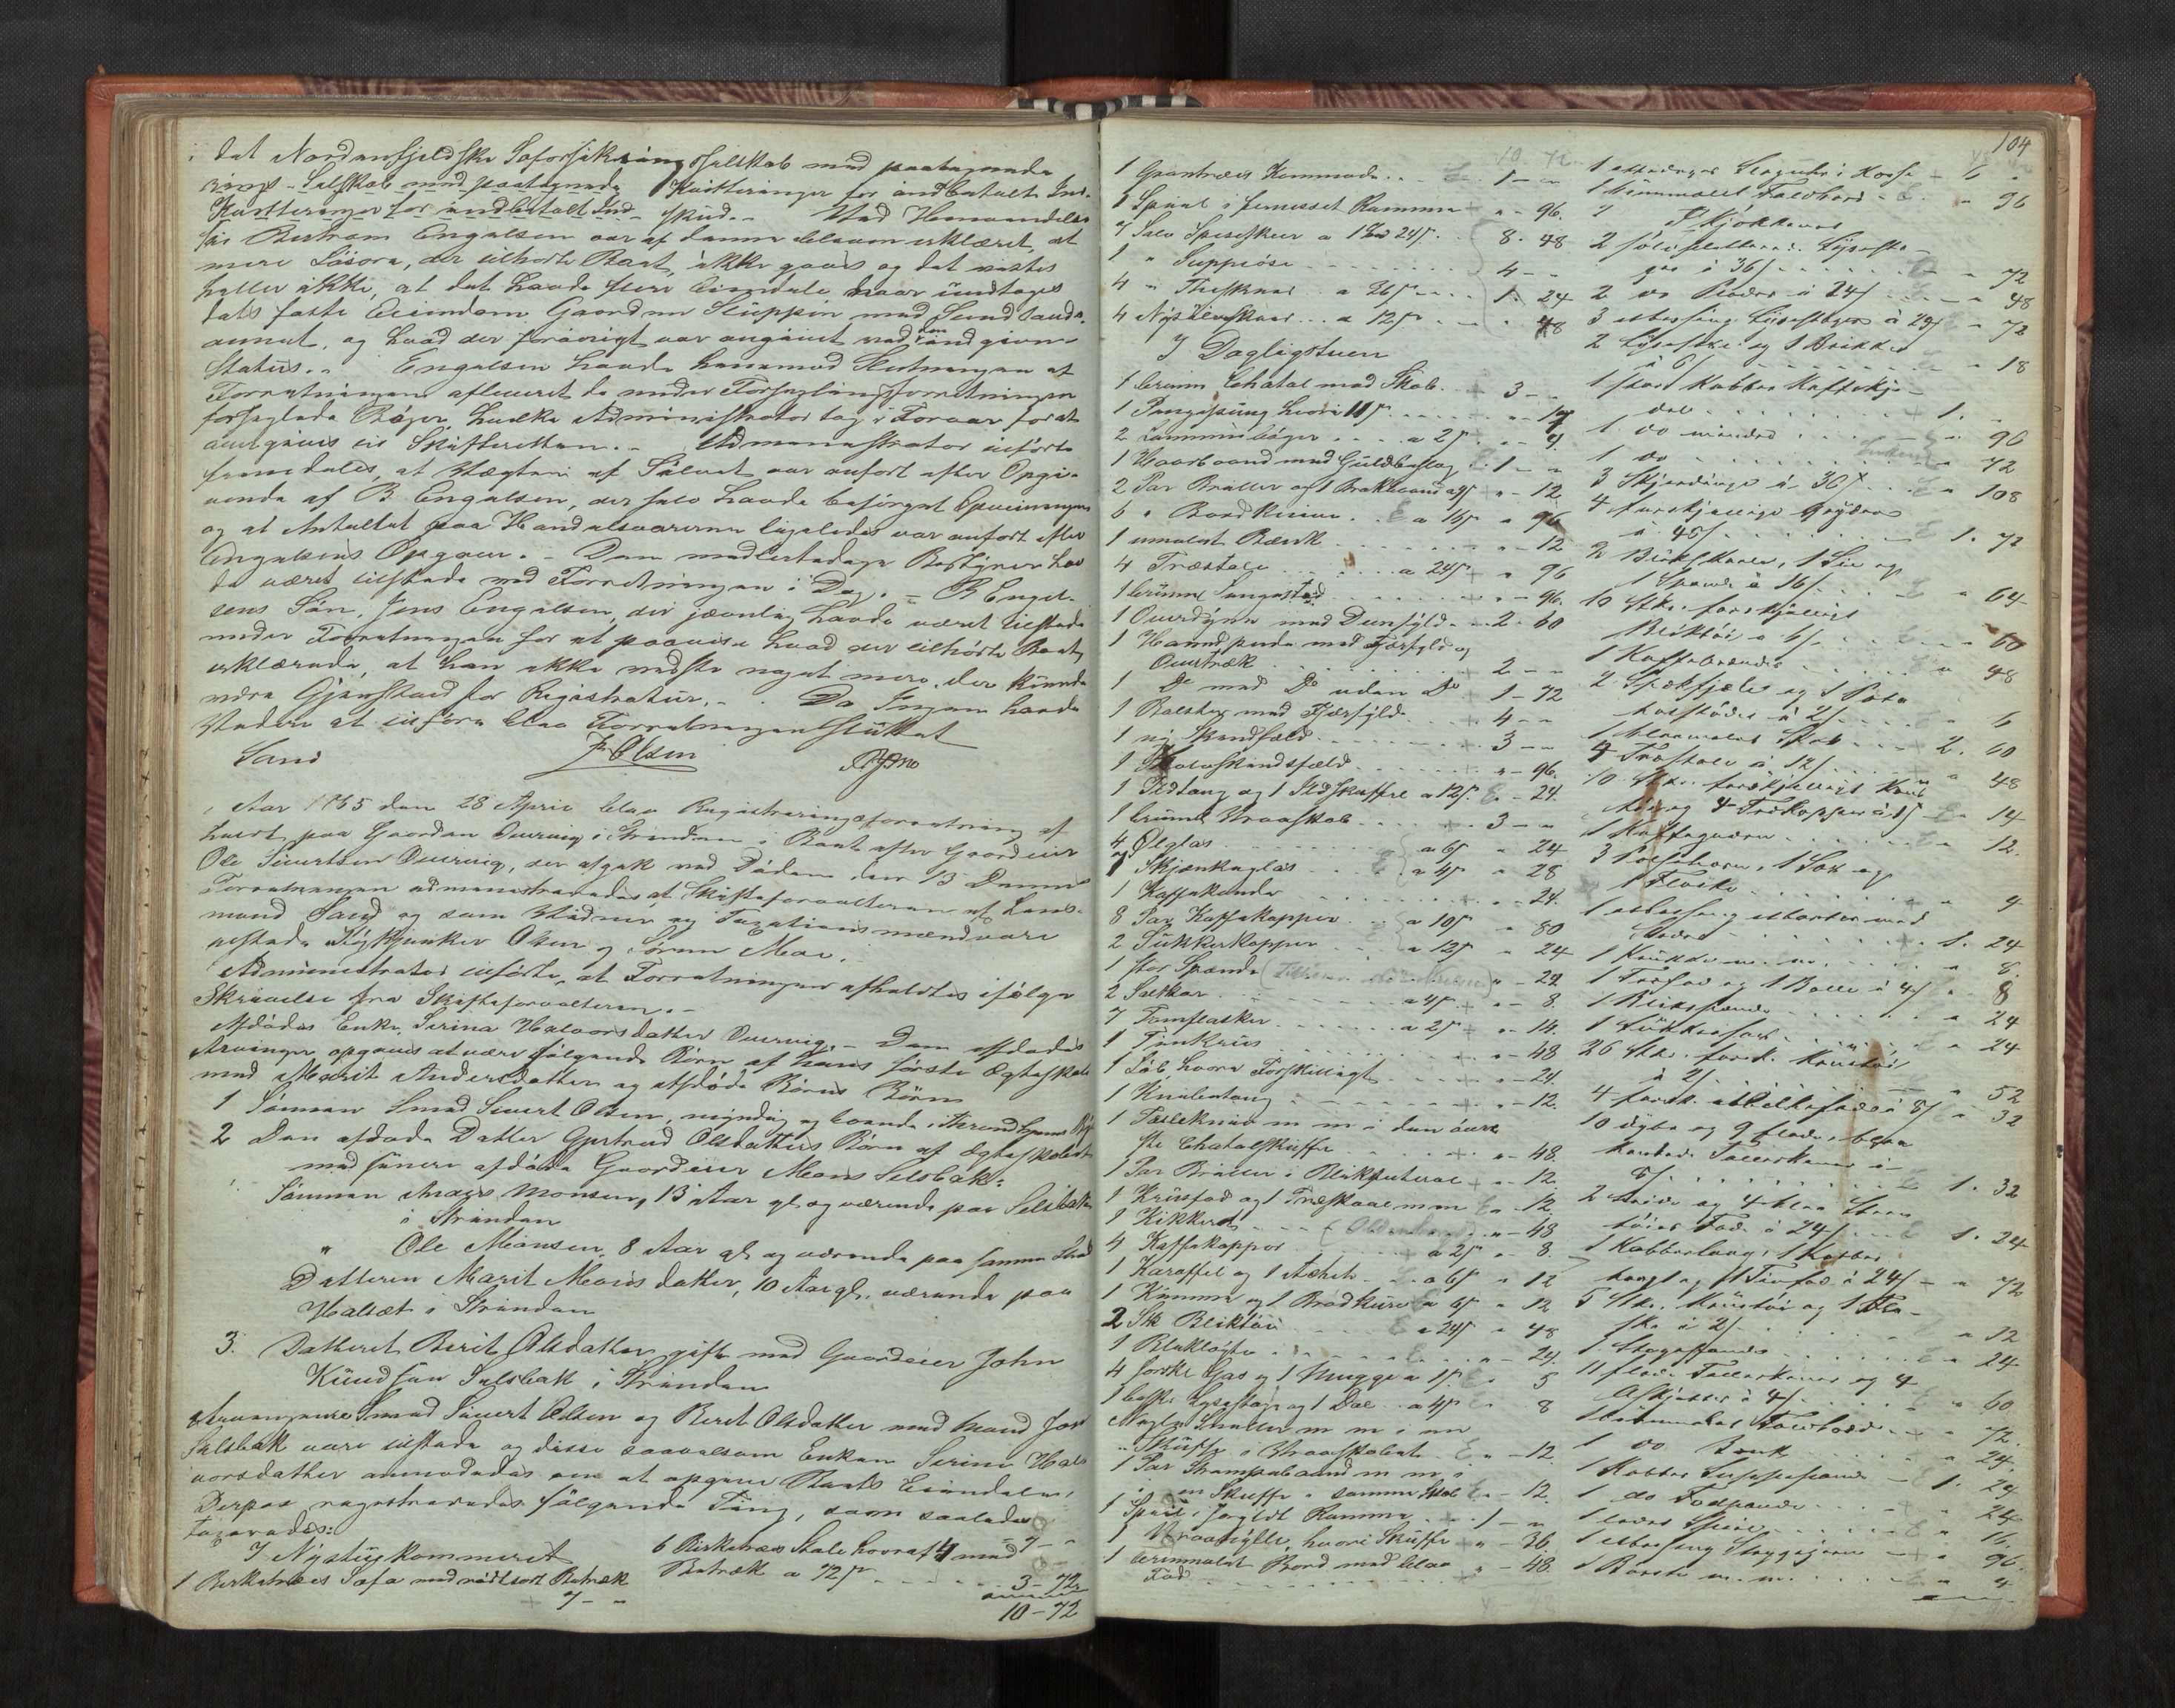 det Nordenfjeldske Soforsikringsselskab med paategnede
rings-Selskab med paategnede Kvitteringer for indbetalt Ind-
Kvitteringer for indbetalt Ind- skud.. Ved Henvendelse
til Bertram Engelsen var af denne bleven erklæret, at
mere Løsøre, der tilhørte Boet, ikke gaves og det vistes
heller ikke, at det havde flere Eiendele naar undtages
dets faste Eiendom Gaarden Sluppen med Sundland
annet, og hvad der forøvrigt var angivet ved den indgivne
Status.. Engelsen havde henimod Slutningen af
Forretningen afleveret de under Forseglingsforretningen
forseglede Bøger, hvilke Administrator tog i Forvar for at
overgives til Skifteretten.. Administrator tilførte
fremdeles, at Vægten af Sølvet var anført efter Opgi-
vende af B Engelsen, der selv havde besørget Opveiningen
og at Antallet paa Handelsvarerne ligeledes var anført efter
Engelsens Opgave.. Den midlertidige Bestyrer hav
de været tilstede ved Forretningen i Dag. B Engel-
sens Søn, Jens Engelsen, der jævnlig havde været tilstede
under Forretningen for at paavise hvad der tilhørte Boet,
erklærede, at han ikke vidste noget mere, der kunde
være Gjenstand for Registratur.. Da Ingen havde
Videre at tilføre blev Forretningen sluttet
Sand J. Olsen
Aar 1865 den 28 April blev Registreringsforretning af
holdt paa Gaarden Overvig i Strinden i Boet efter Gaardeier
Ole Sivertsen Overvig, der afgik ved Døden den 13 Dennes
Forretningen administreredes af Skifteforvalteren af Lens-
mand Sand og som Vidner og Taxationsmænd vare
tilstede Olsen og Søren Moe.
Administrator tilførte, at Forretningen afholdtes ifølge
Skrivelse fra Skifteforvalteren.-
Afdødes Enke, Serina Halvorsdatter Overvig. Den afdødes
Arvinger opgaves at være følgende Børn af hans første Ægteskab
med Marit Andersdatter og afdøde Børns Børn
1 Sønnen Smed Sivert Olsen, myndig og boende i Trondhjem
2 Den afdøde Datter Gjertrud Olsdatters Børn af Ægteskabet
med senere afdøde Gaardeier Mons Selsbak:
Sønnen Anders Monsen, 13 Aar gl. og værende paa Selsbak
i Strinden
" Ole Monsen, 8 Aar gl og værende paa samme Sted
Datteren Marit Monsdatter, 10 Aar gl. værende paa
Halset i Strinden
3. Datteren Berit Olsdatter gift med Gaardeier John
Knudsen Selsbak i Strinden
Arvingerne Smed Sivert Olsen og Beret Olsdatter med Mand John
Selsbak vare tilstede og disse saavelsom Enken Serine Hal-
vorsdatter anmodedes om at opgive Boets Eiendele,
Derpaa registreredes følgende Ting, som saaledes
taxeredes:
I Nystuekammeret
1 Birketræes Sofa med rødtsort Betræk
7 - "
6 Birketræes Stole hvoraf 4 med 7 - "
Betræk a 72 ß . . . . 3 - 72
10 - 72
104
1 Grantræes Kommode . . 1 - "
1 Speil i fernisset Ramme " - 96.
7 Sølv Spiseskeer a 1 Spd 24 ß. 8 - 48
1 " Suppeøse 4 - -
4 " Theskeer a 36 ß 1 - 24
4 Nysølvskeer . . a 12 ß - 48
I Dagligstuen
1 brun Chatol med Skab . . 3 - -
1 Pengepung hvori 11 ß . . . " - 14
2 Lommebøger . . . . a 2 ß " - 4
1 Haarbaand med Guldbeslag . . 1 - "
2 Par Briller og 1 " - 12
6 " Bordknive . . a 16 ß " 96
1 umalet Bænk " - 12
4 Træstole a 24 ß " 96
1 brun Sengested " - 96.
1 Overdyne med Dunfyld . . 2 - 60
1 Hovedpude med Fjærfyld og
Overtræk 2 - -
1 Do med Do uden Do 1 - 72
1 Bolster med Fjærfyld . . 4 - -
1 ny Skindfæld 3 - -
1 Skindsfæld " - 96.
1 Ildtang og 1 Ildskuffe a 12 ß " - 24.
1 brunt Vraaskab 3 - -
4 Ølglas a 6 ß " 24
7 Skjænkeglas a 4 ß " 28
1 Kaffekande " - 24.
8 Par Kaffekopper a 10 ß " 80
2 Sukkerkopper a 12 ß " 24
1 stor Spand " - 24
2 Saltkar a 4 ß " - 8.
7 Tomflasker a 2 ß " - 14.
1 Tinkrus " - 48
1 Løb, hvori Forskjelligt " - 24.
1 Knibetang " - 12.
1 Foldekniv m m i den øver-
ste Chatolskuffe " - 48.
1 Par Briller i Blikfuteral " - 12.
1 Krusfad og 1 Træskaal m m " - 12.
1 Kikkert " - 48
4 Kaffekopper a 2 ß " 8.
1 Karaffel og 1 a 6 ß " 12
1 Kumme og 1 Brødkurv a 6 ß " 12
2 Stk Bliktøi a 24 ß " 48
1 Bliklygte " - 24.
4 forskj. Glas og 1 Mugge a 1 ß " 5
1 Lysestage og 1 Do a 4 ß " 8
Skuffe i Vraaskabet " - 12.
1 Par Strømpebaand m m i
en Skuffe i samme Skab " - 12.
1 Speil i forgyldt Ramme . . 1 - "
1 Vraahylle, hvori Skuffe " - 36.
1 brunmalet Bord med blaa " - 48.
Fod
1 Slaguhr i Kasse 6 -
1 brunmalet Foldbord " 96
I Kjøkkenet
2 sølvpletterede Lysesta-
ger à 36 ß " 72
2 do Plader à 24 ß " 48
3 Messing Lysestager à 24 ß " 72
2 Lysesaxe og 1 Brikke
à 6 ß " 18
1 stor Kobber Kaffekje-
del 1. -
1 do mindre " 96
1 do " 72
3 Skjærdinge à 36 ß " 108
4 forskjellige Gryder
à 48 ß 1. 72
2 Blikskaale, 1 Sie og
1 Spand à 16 ß " 64
10 Stkr. forskjelligt
Bliktøi a 6 ß " 60
1 Kaffebrænder " 48
2 Spækfjæle og 1 Pota-
tesstøder à 2 ß " 6
1 blaamalet Skab 2. 60
4 Træstole à 12 ß " 48
10 Stkr. forskjelligt Krus
tøi og 4 Trækopper à 1 ß " 14
1 Kaffeqværn " 12.
3 1 Sax og
1 Flaske " 4
1 Messing Morter med
Støder 1. 24
1 Krukke m. m. " 8.
1 Træfad og 1 Bolle à 4 ß " 8
1 Blikspand " 24
1 Sukkersax " 24
26 Stkr. forsk. Krustøi
à 2 ß " 52
4 forsk. Melkefade à 8 ß " 32
10 dybe og 9 flade, blaa
kantede Tallerkener à
8 ß 1. 32
2 hvide og 4 blaa Sten
tøies Fade à 24 ß 1. 24
1 Kobberlaag, 1 Kobber
og 1 Tinfad à 24 ß " 72
5 Stkr. Krustøi og 1 Fla-
ske à 2 ß " 12
1 Stegepande " 24
11 flade Tallerkener og 4
Asjetter à 4 ß " 60
1 brunmalet Foldbord " 72.
1 do Bænk " 24.
1 Kobber Suppespand 1. 24
1 do Fodpande " 24
1 Speil " 16.
1 Messing Strygejern " 96.
1 Børste m. m. " 4